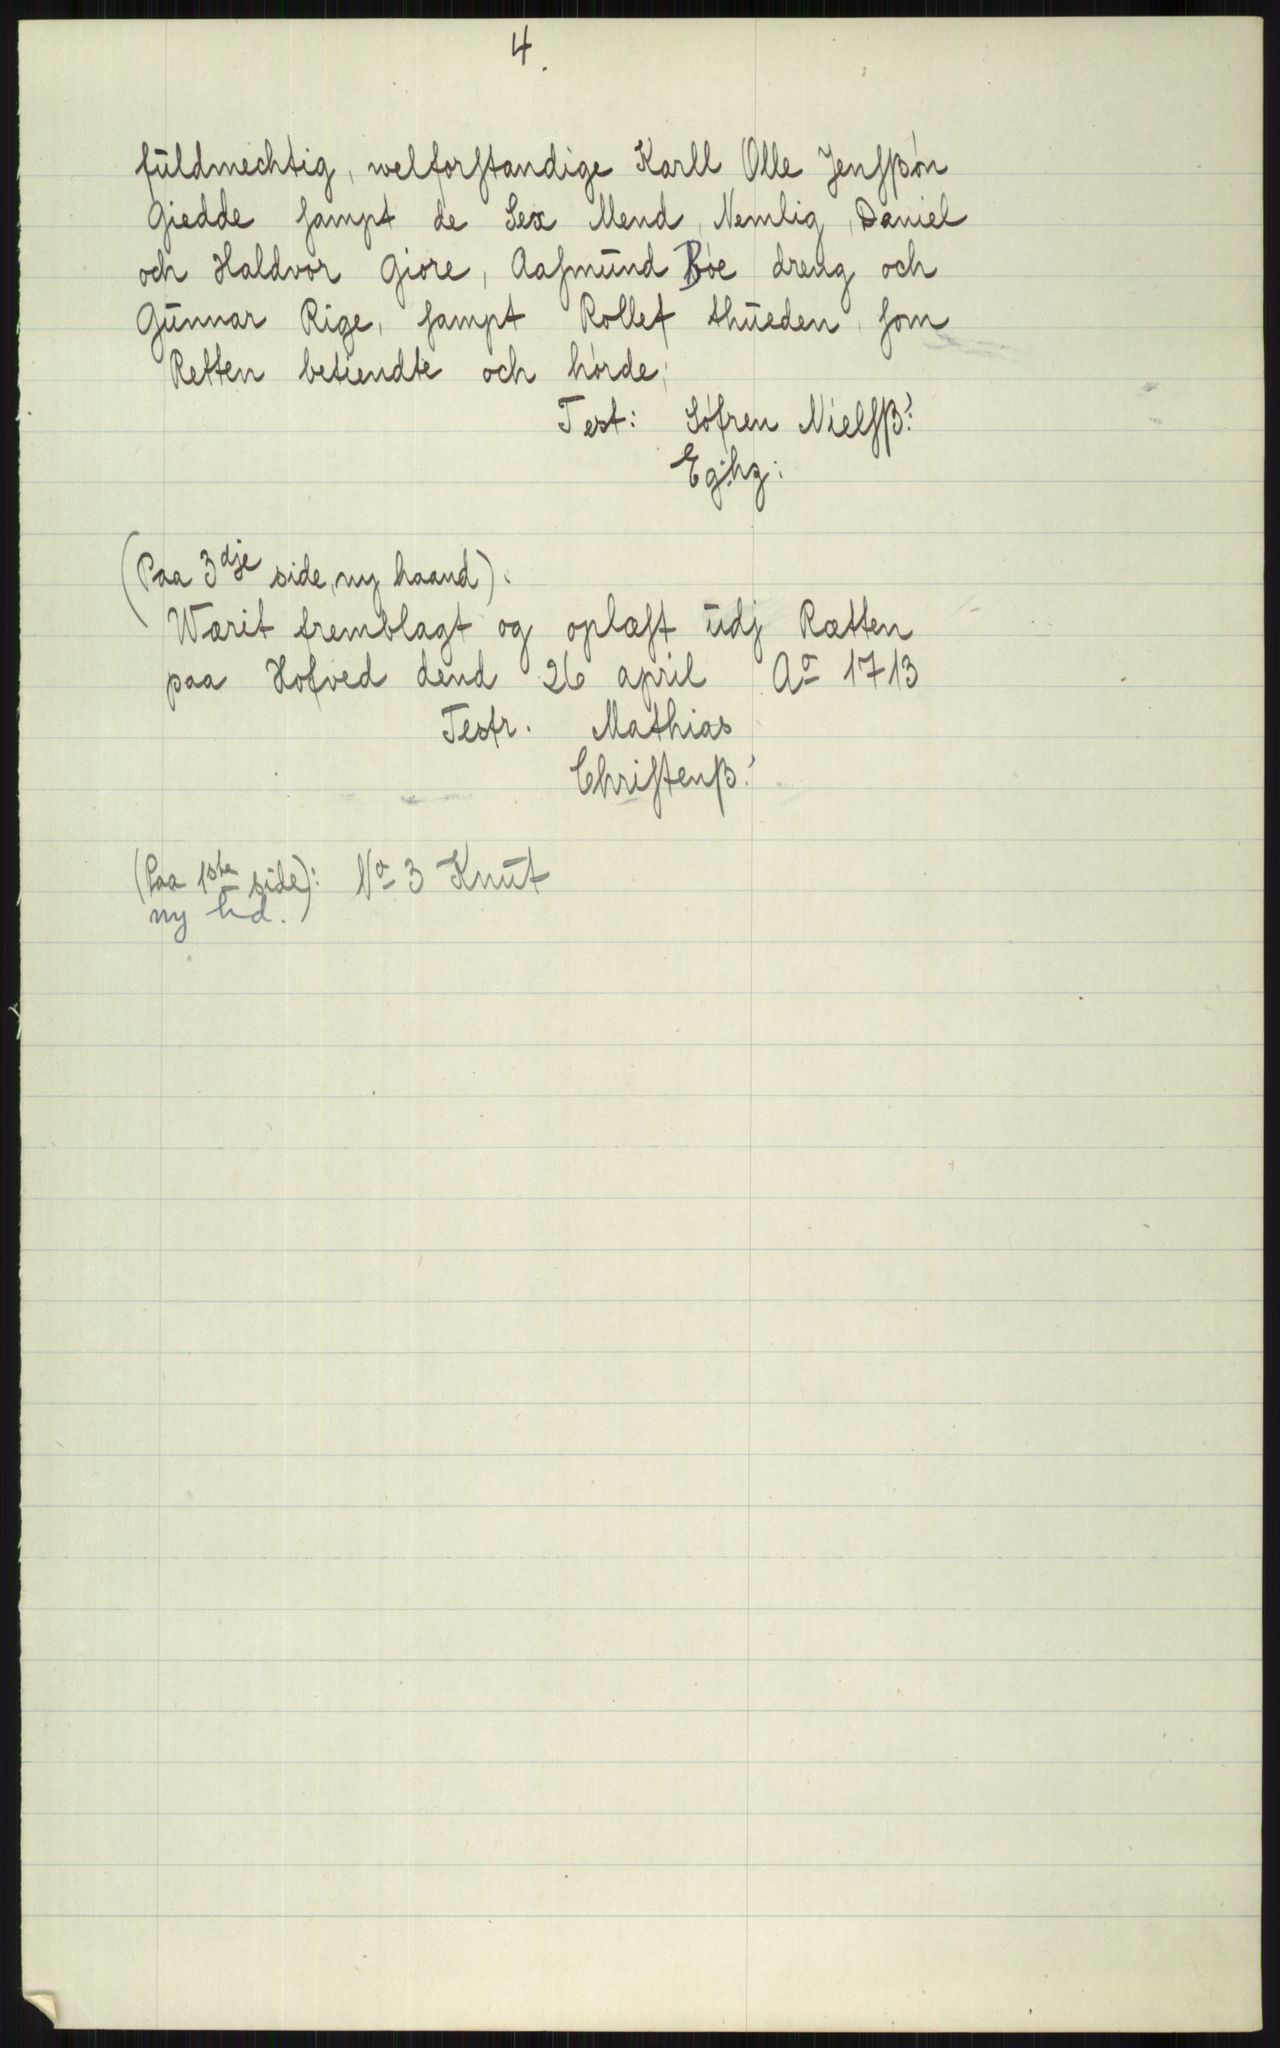 4.
fūldmechtig, welforſtandige Karll Olle Jenſßøn
Giedde ſampt de Sex Mend, Nemlig, Daniel
och Haldvor Giøre, Aaſmūnd Bøe dreng och
Gūnnar Rige, ſampt Rollef thūeden, ſom
Retten betiendte och hørde;
Test: Søfren Nielſß:
Eghz:
(Paa 3dje side, ny haand).
Wærit fremblagt og oplæſt ūdj Rætten
paa Hofved dend 26 april Ao 1713
Testr. Mathias
Chriſtenß:
(Paa 1ste side): No 3 Knūt
ny hd.